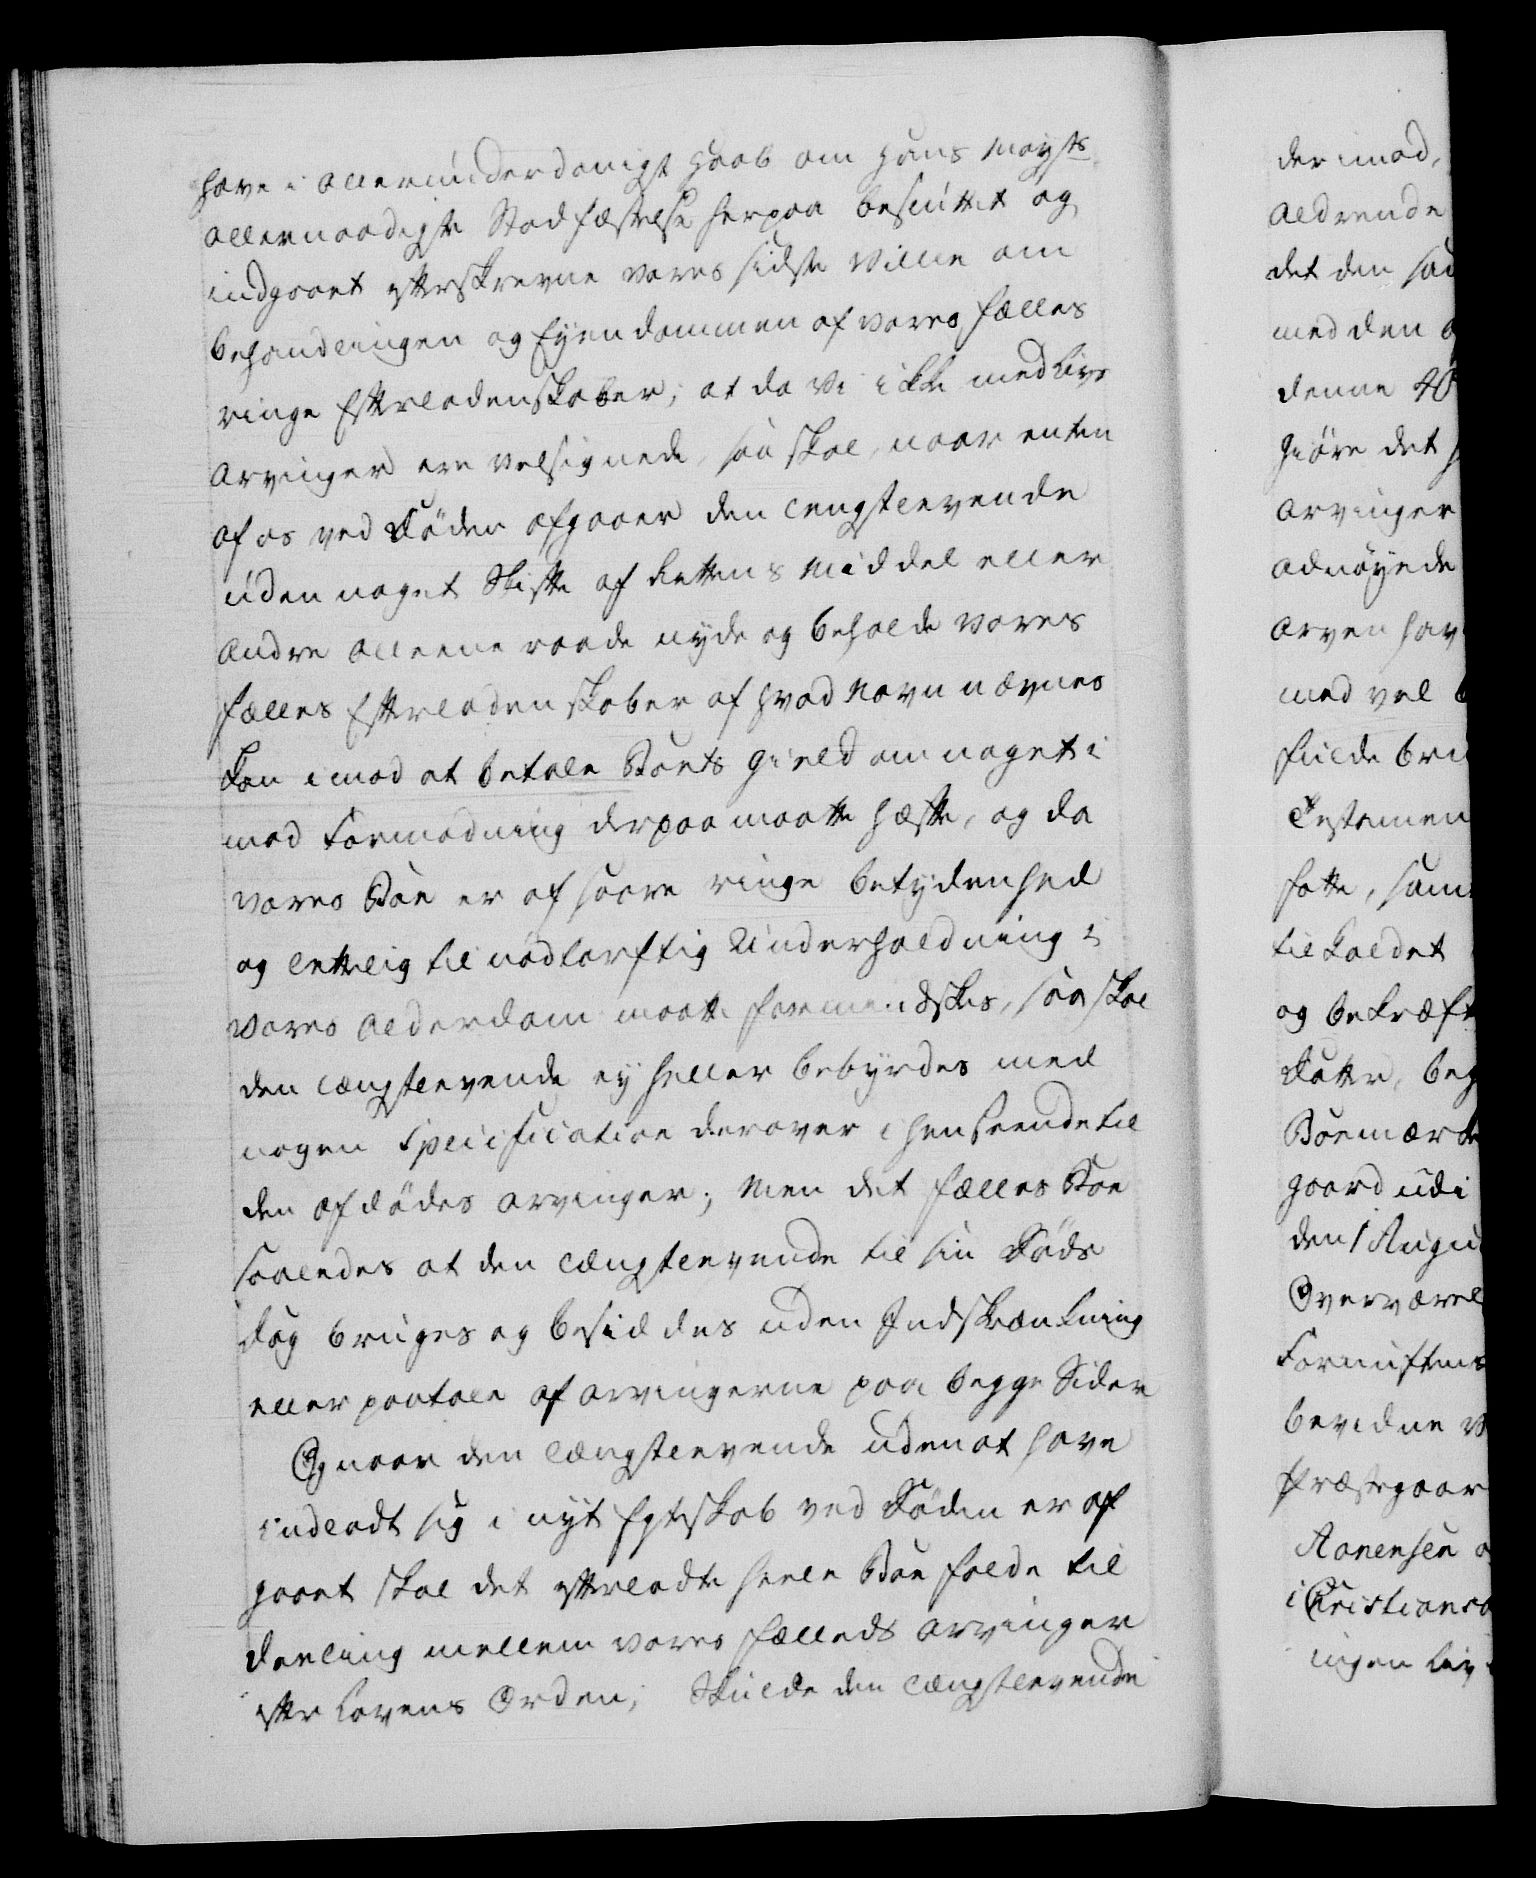 have i allerunderdanigst Haab om Hans Mayts
allernaadigste Stadfæstelse herpaa besluttet og
indgaaet efterskrevne vores sidste Villie om
behandlingen og Eyendommen af vores fælles
ringe Efterladenskaber; at da vi ikke med Livs
Arvinger ere velsignede, saa skal, naar enten
af os ved Døden afgaaer den lengstlevende
uden noget Skifte af Rettens Middel eller
andre alleene raade nyde og beholde vores
fælles Efterladenskaber af hvad Navn nævnes
kan imod at betale Boets Gield om noget i
mod Formodning derpaa maatte hæfte, og da
vores Boe er af saare ringe betydenhed
og lettelig til nødtørftig Underholdning i
vores Alderdom maatte formindskes, saa skal
den længstlevende ey heller bebyrdes med
nogen Specification derover i henseende til
den afdødes Arvinger; Men det fælles Boe
saaledes at den længstlevende til sin Døds
dag bruges og besiddes uden Indskrænkning
eller paatale af Arvingerne paa begge Sider
Og naar den længstlevende uden at have
indladt sig i nyt Egteskab ved Døden er af
gaaet skal det efterladte heele Boe falde til
deeling mellem vores fælleds Arvinger
efter Lovens Orden; Skulde den længstlevende
derimod,
aldrende
det den
med den
denne
giøre det
Arvinger
adnøyede
Arven hav
med vel
fulde
Testamen
fatte, sam
tilkaldet
og bekræft
Datter, beg
Boemærke
gaard udi
den 1 Augu
Overværel
Fornuftens
bevidne
Præstegaar
Aanensen
i Christiansa
ingen Liv